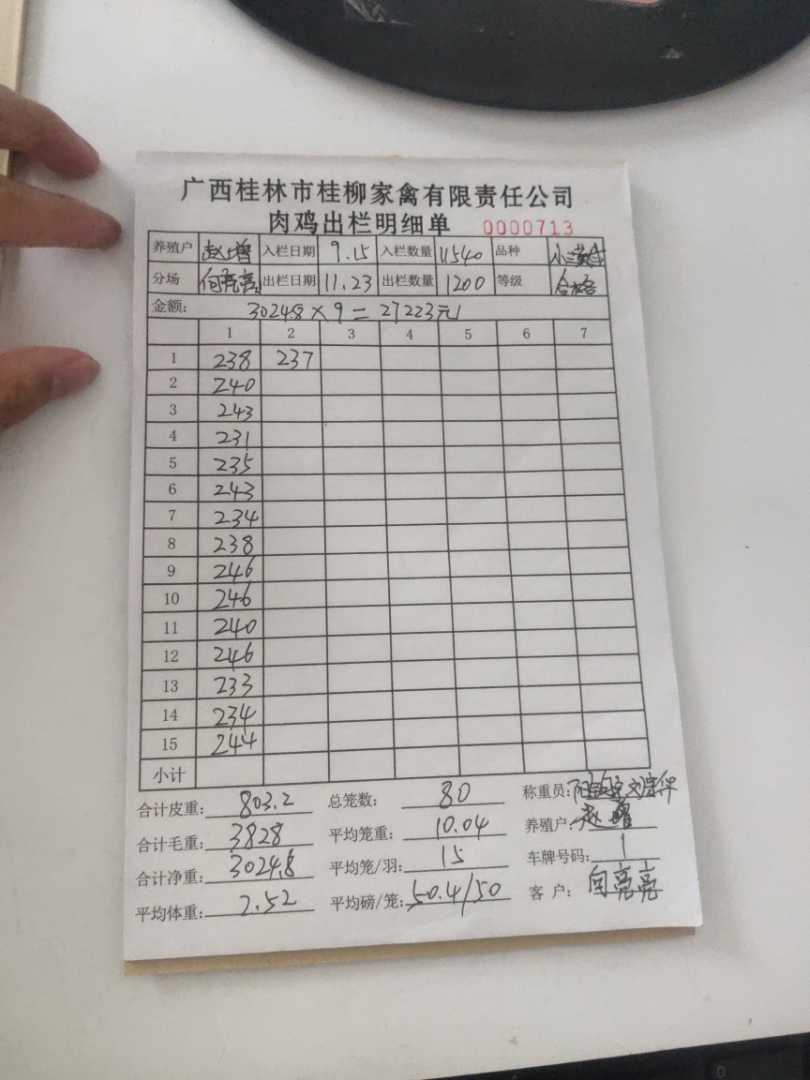 广西桂林市桂柳家禽有限责任公司
肉鸡出栏明细单 0000713
养殖户 赵增 入栏日期 9.15 入栏数量 11540 品种
分场 闫亮亮 出栏日期 11.23 出栏数量 1200 等级 合格
金额: 3024.8 × 9 = 27223元
1 2 3 4 5 6 7
1 238 237
2 240
3 243
4 231
5 235
6 243
7 234
8 238
9 246
10 246
11 240
12 246
13 233
14 234
15 244
小计
合计皮重: 803.2 总笼数: 80 称重员:
合计毛重: 3828 平均笼重: 10.04 养殖户: 赵增
合计净重: 3024.8 平均笼/羽: 15 车牌号码: 1
平均体重: 2.52 平均磅/笼: 50.4/50 客户: 闫亮亮